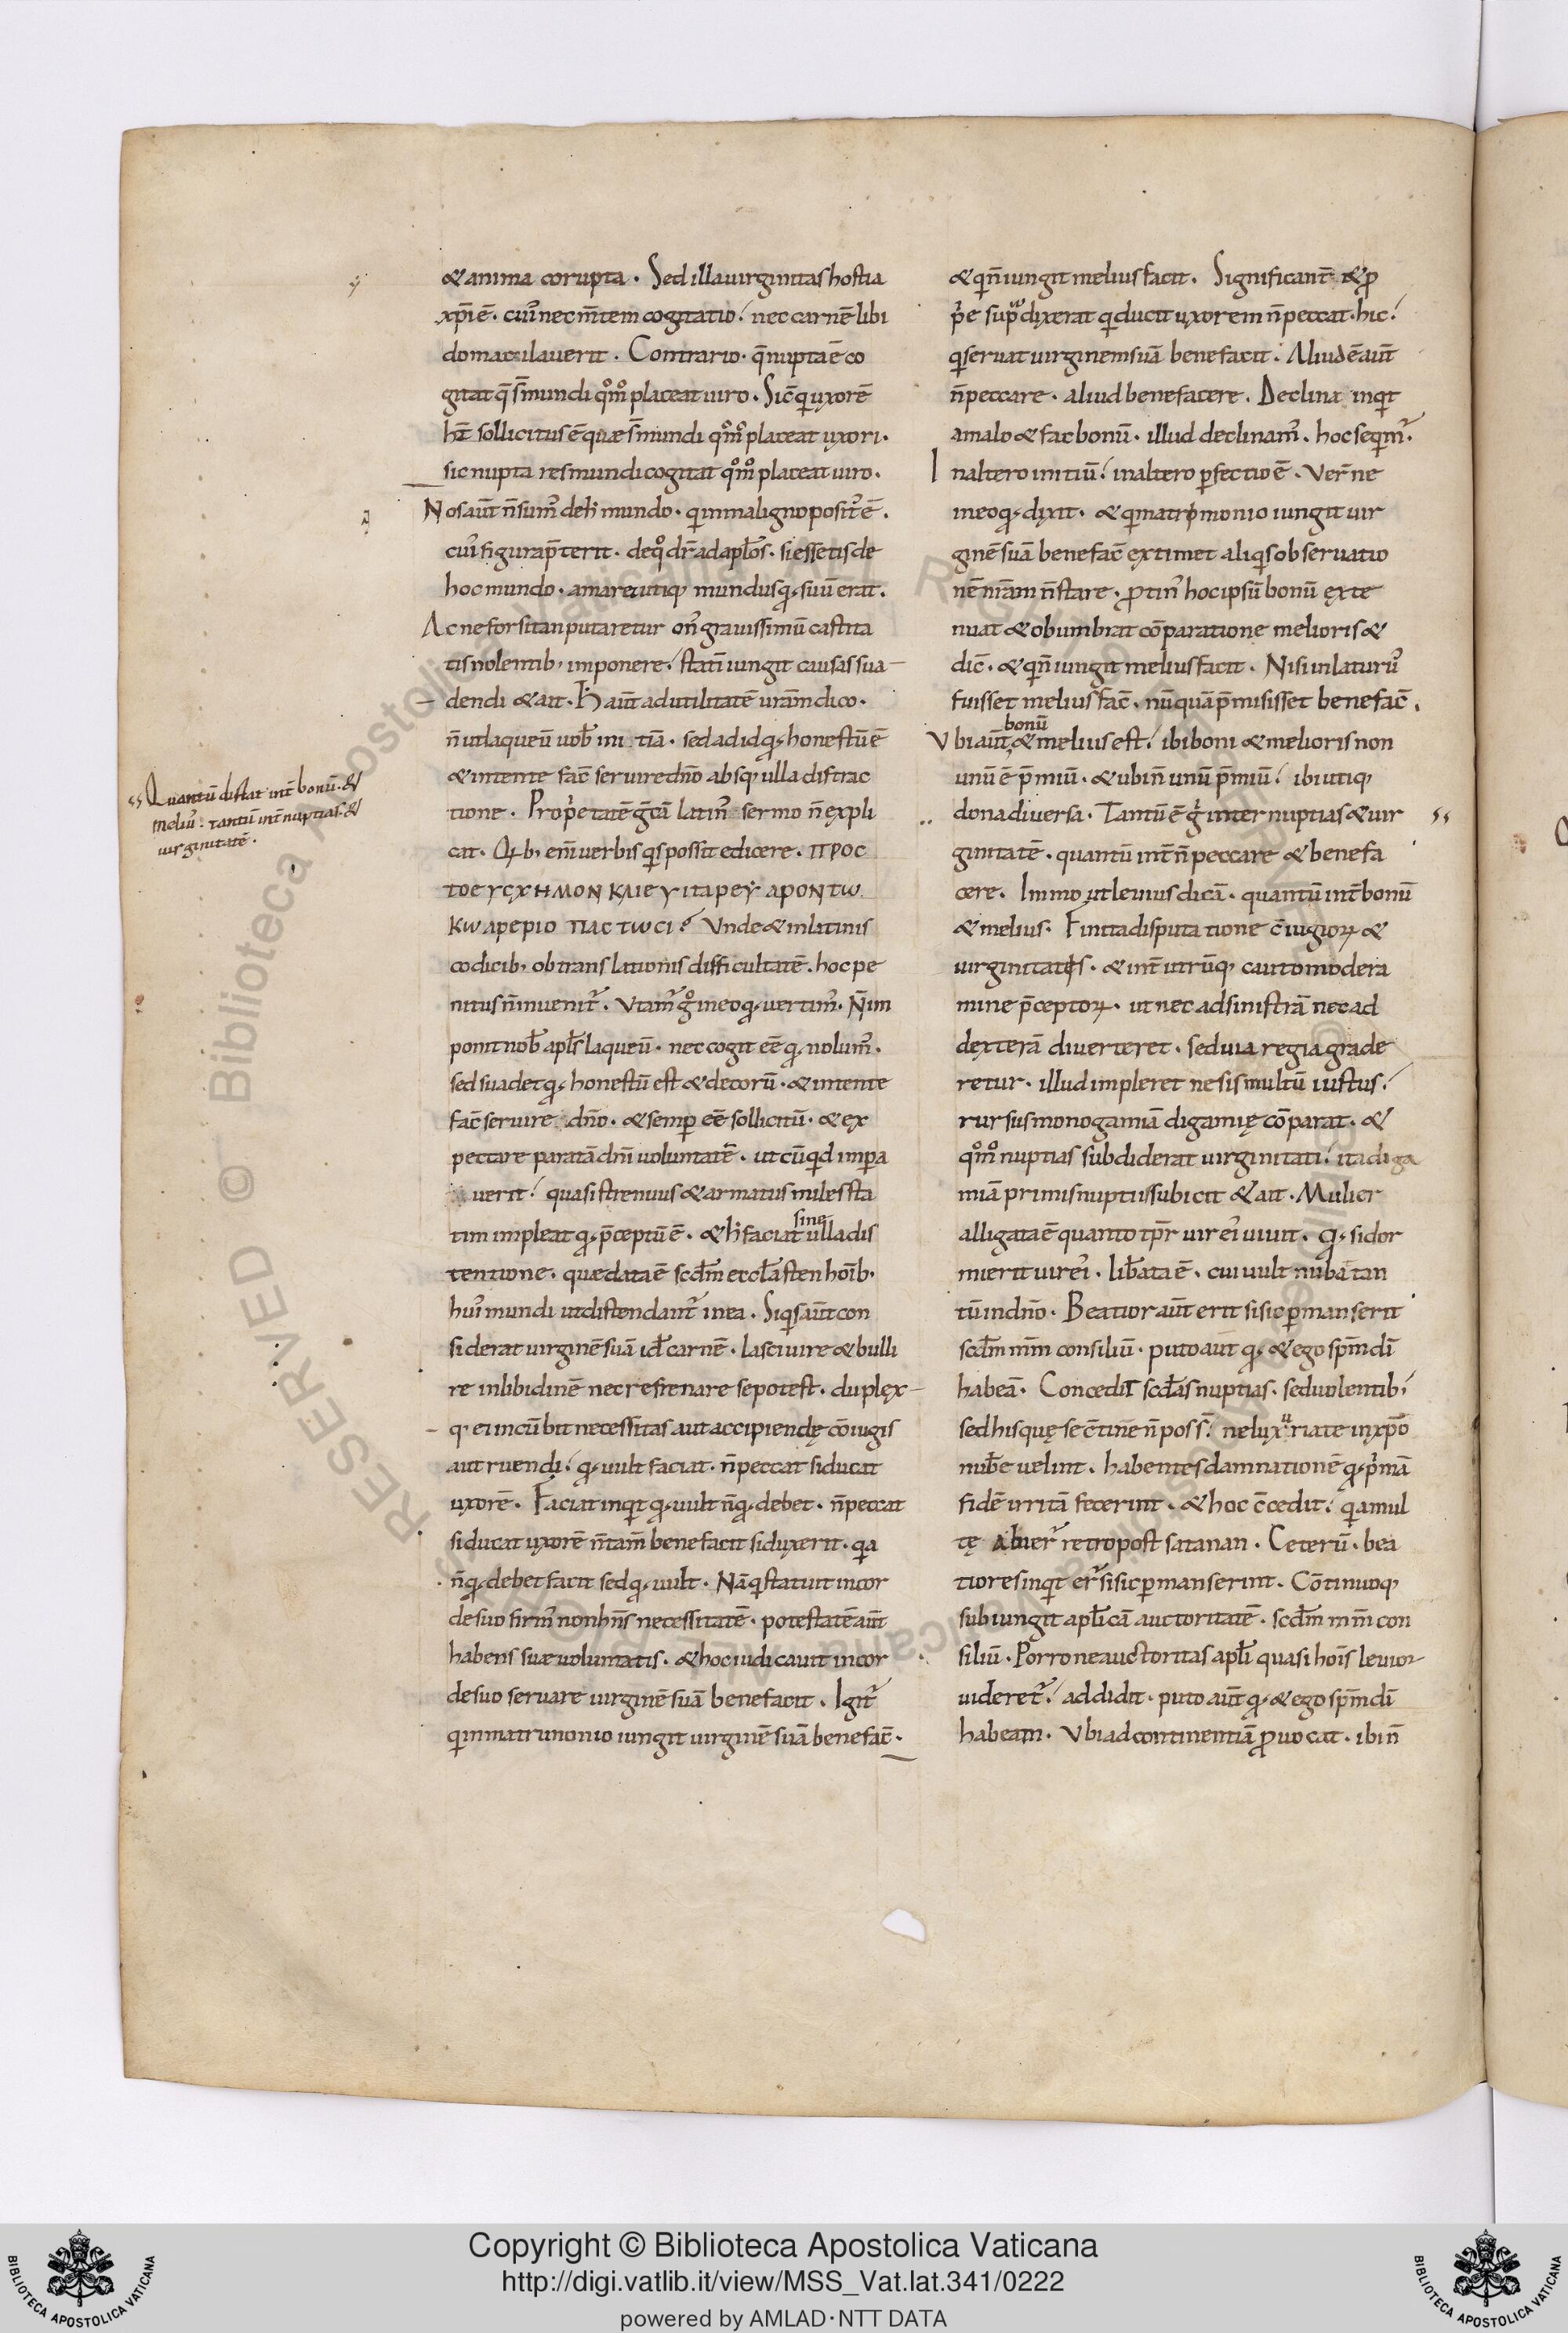 & anima corupta . Sed illa uirginitas hostia
xp̄i ē . cui᾽ nec m̄tem cogitatio ; nec carnē libi
do maculauerit . Contrario . q̄ nupta ē co
gitat q̄ s̄ mundi qͦmͦ placeat uiro . Sic̄ qui uxorē
ht̄ sollicitus ē quæ s̄ mundi qͦmͦ placeat uxori .
sic nupta res mundi cogitat qͦmͦ placeat uiro .
Nos aūt n̄ sum᾽ de h᾽ mundo . qui in maligno posit᾽ ē .
cui᾽ figura p̄terit . de qͦ dr̄ ad aplōs . si essetis de
hoc mundo . amaret utiq; mundus qđ suū erat .
Ac ne forsitan putaretur on᾽ grauissimū castita
tis nolentib; imponere ; statī iungit causas sua
dendi & ait . H᾽ aūt ad utilitatē ur̄am dico .
n̄ ut laqueū uob̄ in tiā . sed ad id qđ honestū ē
& intente fac̄ seruire dn̄o absq; ulla distrac
tione . Prop᾽etatē ḡcā latin᾽ sermo n̄ expli
cat . Qꝝb; eni᾽ uerbis q᾽s possit edicere . ΠΡΟC
ΤΟΕΥCΧΗΜΟΝ ΚΛΙΕΥΙΤΑΡΕΥ ΑΡΟΝΤω
Κω ΑΡΕΡΙΟ ΠΑCΤωCΙ ? Vnde & in latinis
codicib; ob translationis difficultatē . hoc pe
nitus n̄ inuenit᾽ . Vtam᾽ gͦ in eo qđ uertim᾽ . N̄ im
ponit nob̄ apl̄s laqueū . nec cogit ēē qđ nolum᾽ .
sed suadet qđ honestū est & decorū . & intente
fac̄ seruire dn̄o . & semp̄ ēē sollicitū . & ex
pectare paratā dn̄i uoluntatē . ut cū quid impa
uerit ; quasi strenuus & armatus miles sta
tim impleat qđ p̄ceptū ē . & h᾽ faciat sine ulla dis
tentione . quæ data ē scd̄m eccl̄asten hoīb;
hui᾽ mundi ut distendant᾽ in ea . Si quis aūt con
siderat uirginē suā id̄ carnē . lasciuire & bulli
re in libidinē nec refrenare se potest . duplex
q; ei incūbit necessitas aut accipiendę cōiugis
aut ruendi ; qđ uult faciat . n̄ peccat si ducat
uxorē . Faciat inquit qđ uult n̄ qđ debet . n̄ peccat
si ducat uxorē n̄ tam̄ bene facit si duxerit . quia
n̄ qđ debet facit sed qđ uult . Nā qui statuit in cor
de suo firm᾽ non hn̄s necessitatē . potestatē aūt
habens suæ uoluntatis . & hoc iudicauit in cor
de suo seruare uirginē suā bene facit . Igit᾽
qui in matrimonio iungit uirginē suā bene fac̄ .
“ Quantū distat int̄ bonū . &
meliu᾽ . tantū int̄ nuptias . &
uirginitatē .
& qui n̄ iungit melius facit . Significant̄ & pro
p᾽e supra dixerat qui ducit uxorem n̄ peccat . hic ;
qui seruat uirginem suā bene facit . Aliud ē aūt
n̄ peccare . aliud bene facere . Declina inquit
a malo & fac bonū . illud declinam᾽ . hoc sequim᾽ .
In altero initiū ; in altero p̄fectio ē . Ver̄ ne
in eo qđ dixit . & qui matrimonio iungit uir
ginē suā bene fac̄ extimet aliquis obseruatio
nē nr̄am n̄ stare . protin᾽ hoc ipsū bonū exte
nuat & obumbrat cōparatione melioris &
dic̄ . & qui n̄ iungit melius facit . Nisi inlatur᾽
fuisset melius fac̄ . nūquā p̄misisset bene fac̄ .
Vbi aūt bonū & melius est ; ibi boni & melioris non
unū ē p̄miū . & ubi n̄ unū p̄miū ; ibi utiq;
dona diuersa . Tantū ē g᾽ inter nuptias & uir
ginitatē . quantū int̄ n̄ peccare & benefa
cere . Immo ut leuius dicā . quantū int̄ bonū
& melius . Finita disputatione c̄iugioꝝ &
uirginitatis . & int̄ utrūq; cauto modera
mine p̄ceptoꝝ . ut nec ad sinistrā nec ad
dexterā diuerteret . sed uia regia grade
retur . illud impleret ne sis multū iustus ;
rursus monogamiā digamię cōparat . &
qͦmͦ nuptias subdiderat uirginitati ; ita diga
miā primis nuptiis subicit & ait . Mulier
alligata ē quanto tp̄r uir ei᾽ uiuit . qđ si dor
mierit uir ei᾽ . lib̄ata ē . cui uult nubat tan
tū in dn̄o . Beatior aūt erit si sic p̄manserit
scd̄m m̄m consiliū . puto aut qđ & ego sp̄m dī
habeā . Concedit scd̄as nuptias . sed uolentib;
sed his quę se c̄tine n̄ poss̄ ; ne luxuriate in xp̄o
nub̄e uelint . habentes damnationē qđ p᾽mā
fidē irritā fecerint . & hoc c̄cedit ; quia mul
tę abier᾽ retro post satanan . Ceterū . bea
tiores inquit er᾽ si sic p̄manserint . Cōtinuoq;
subiungit apl̄icā auctoritatē . scd̄m m̄m con
siliū . Porro ne auctoritas apl̄i quasi hoīs leuior
uideret᾽ ; addidit . puto aūt qđ & ego sp̄m dī
habeam . Vbi ad continentiā prouocat . ibi n̄
RESERVED © Biblioteca Apostolica Vaticana
Copyright © Biblioteca Apostolica Vaticana
http://digi.vatlib.it/view/MSS_Vat.lat.341/0222
powered by AMLAD·NTT DATA
BIBLIOTECA APOSTOLICA VATICANA
BIBLIOTECA APOSTOLICA VATICANA